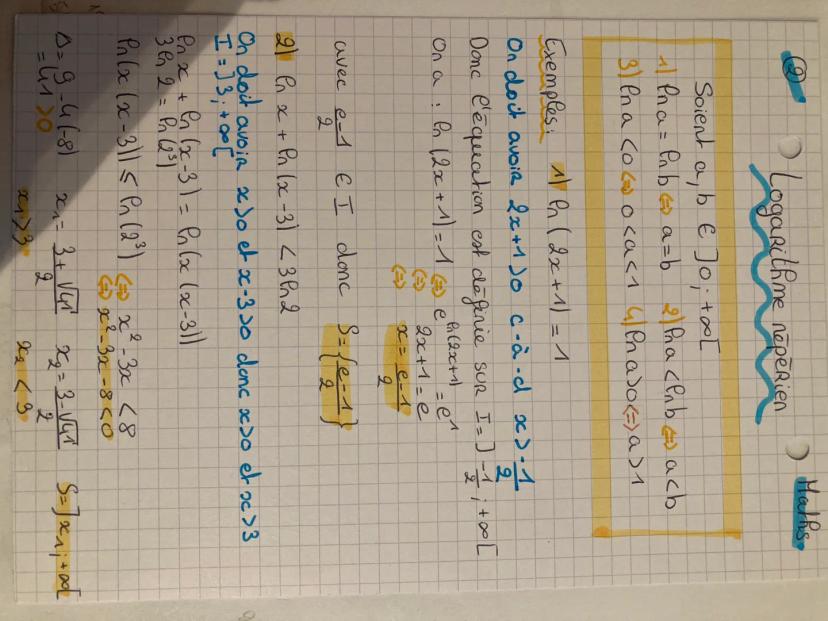 ② Logarithme népérien Maths
Soient a, b ∈ ]0; +∞[
1) ln a = ln b ⇔ a = b 2) ln a < ln b ⇔ a < b
3) ln a < 0 ⇔ 0 < a < 1 4) ln a > 0 ⇔ a > 1
Exemples: 1) ln(2x+1) = 1
On doit avoir 2x+1 > 0 c-à-d x > -1/2
Donc l'équation est définie sur I = ]-1/2 ; +∞[
On a : ln(2x+1) = 1 ⇔ e^ln(2x+1) = e^1
⇔ 2x+1 = e
⇔ x = e-1/2
avec e-1/2 ∈ I donc S = {e-1/2}
2) ln x + ln(x-3) < 3ln2
On doit avoir x>0 et x-3>0 donc x>0 et x>3
I = ]3; +∞[
ln x + ln(x-3) = ln(x(x-3))
3ln2 = ln(2³)
ln(x(x-3)) ≤ ln(2³) ⇔ x²-3x < 8
⇔ x²-3x-8<0
Δ = 9-4(-8) x₁ = 3+√41/2 x₂ = 3-√41/2 S = ]x₁; +∞[
= 41 > 0 x₁ > 3 x₂ < 3